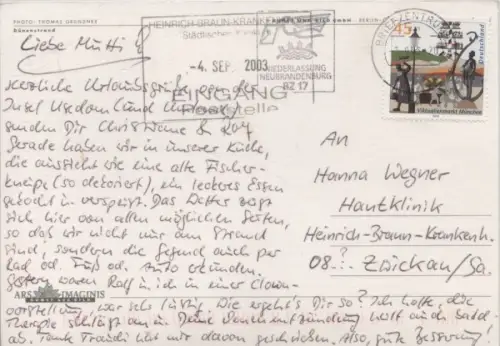 PHOTO: THOMAS GRUNDNER
Dünenstrand
Liebe Mutti!
HEINRICH-BRAUN-KRANKENHAUS
Städtisches
-4. SEP. 2003
EINGANG
Poststelle
NIEDERLASSUNG
NEUBRANDENBURG
BZ 17
BRIEFZENTRUM
45
Deutschland
Viktualienmarkt München
Herzliche Urlaubsgrüße von der
Insel Usedom (und
senden Dir Christiane & Ralf
Gerade haben wir in unserer Küche,
die aussieht wie eine alte Fischer-
kneipe (so dekoriert), ein leckeres Essen
gekocht und verspeist. Das Wetter zeigt
sich hier von allen möglichen Seiten,
so daß wir nicht nur am Strand
sind, sondern die Gegend auch per
Rad od. Fuß od. Auto erkunden.
Gestern waren Ralf u. ich in einer Clown-
vorstellung, war sehr lustig. Wie ergeht's Dir so? Ich hoffe, die
Therapie schlägt an u. Deine entzündung heilt auch bald
ab. Tante Traudi hat mir davon geschrieben. Also, gute Besserung!
ARS IMAGINIS
An
Hanna Wegner
Hautklinik
Heinrich-Braun-Krankenh.
08..?.. Zwickau/Sa.